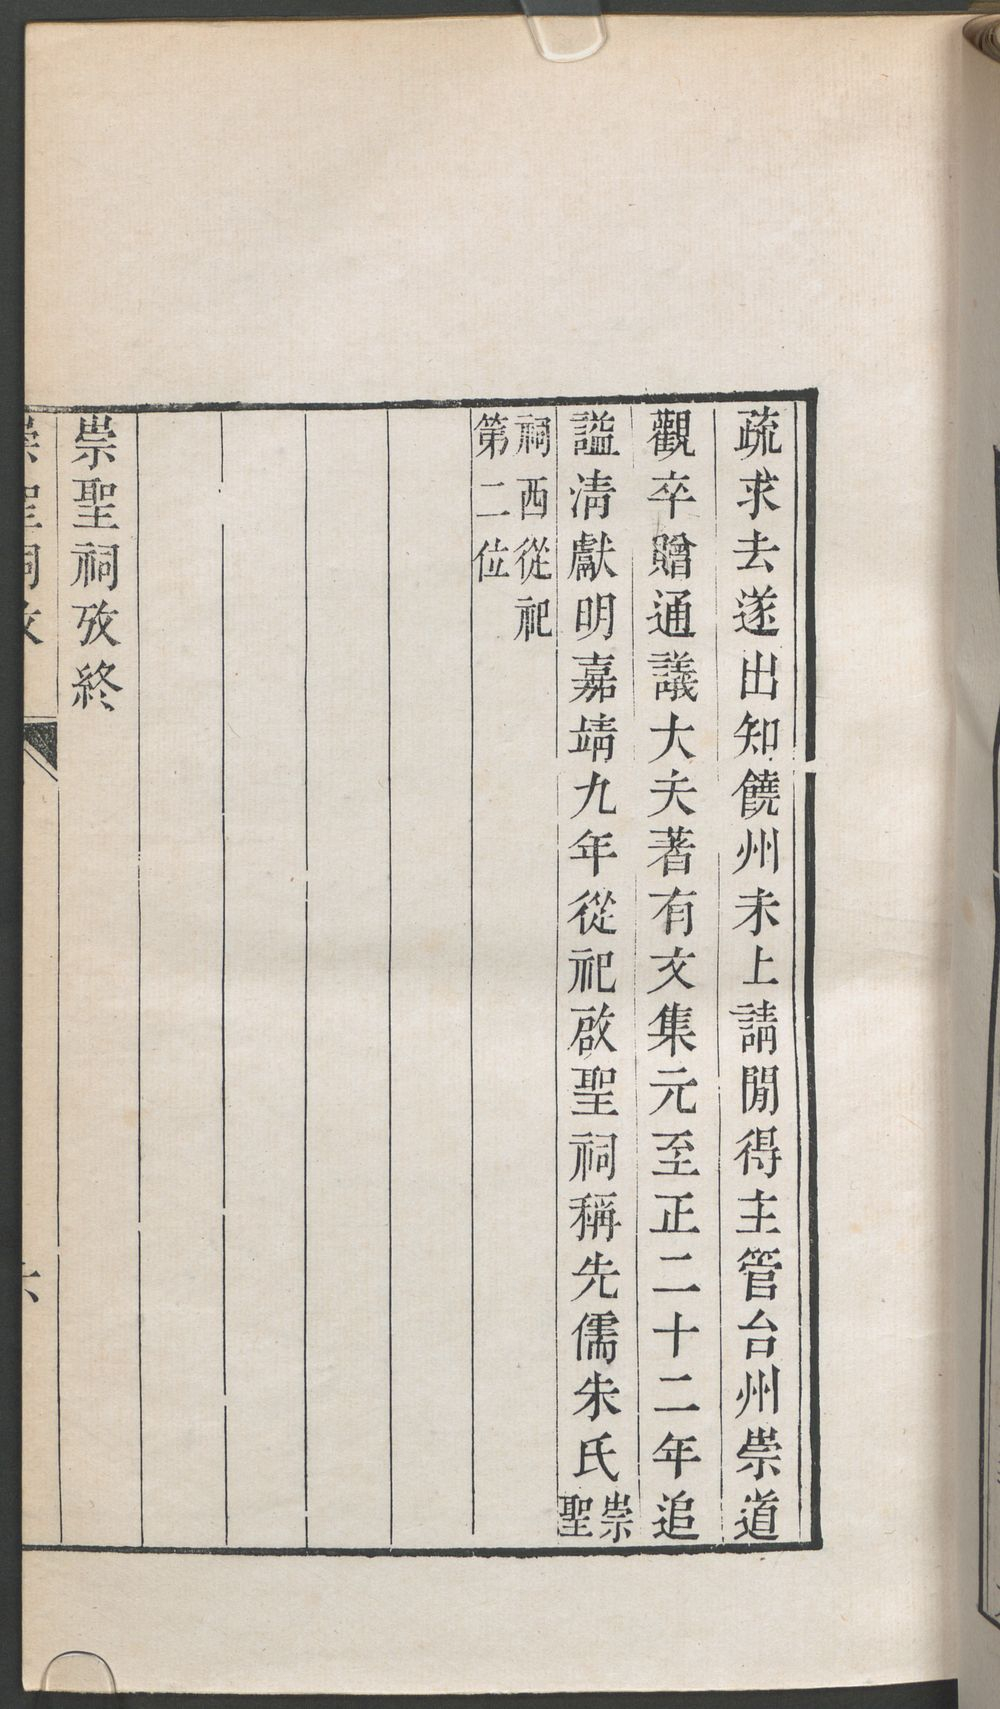 疏求去遂出知饒州未上請閒得主管台州崇道
觀卒贈通議大夫著有文集元至正二十二年追
謚清獻明嘉靖九年從祀啟聖祠稱先儒朱氏崇聖
祠西從祀
第二位
崇聖祠攷終
崇聖祠攷
六